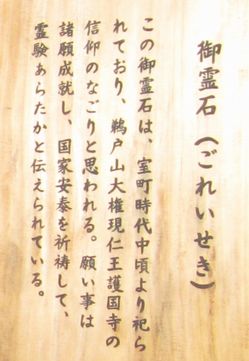 御霊石(ごれいせき)
この御霊石は、室町時代中頃より祀ら
れており、鵜戸山大権現仁王護国寺の
信仰のなごりと思われる。願い事は
諸願成就し、国家安泰を祈祷して、
霊験あらたかと伝えられている。